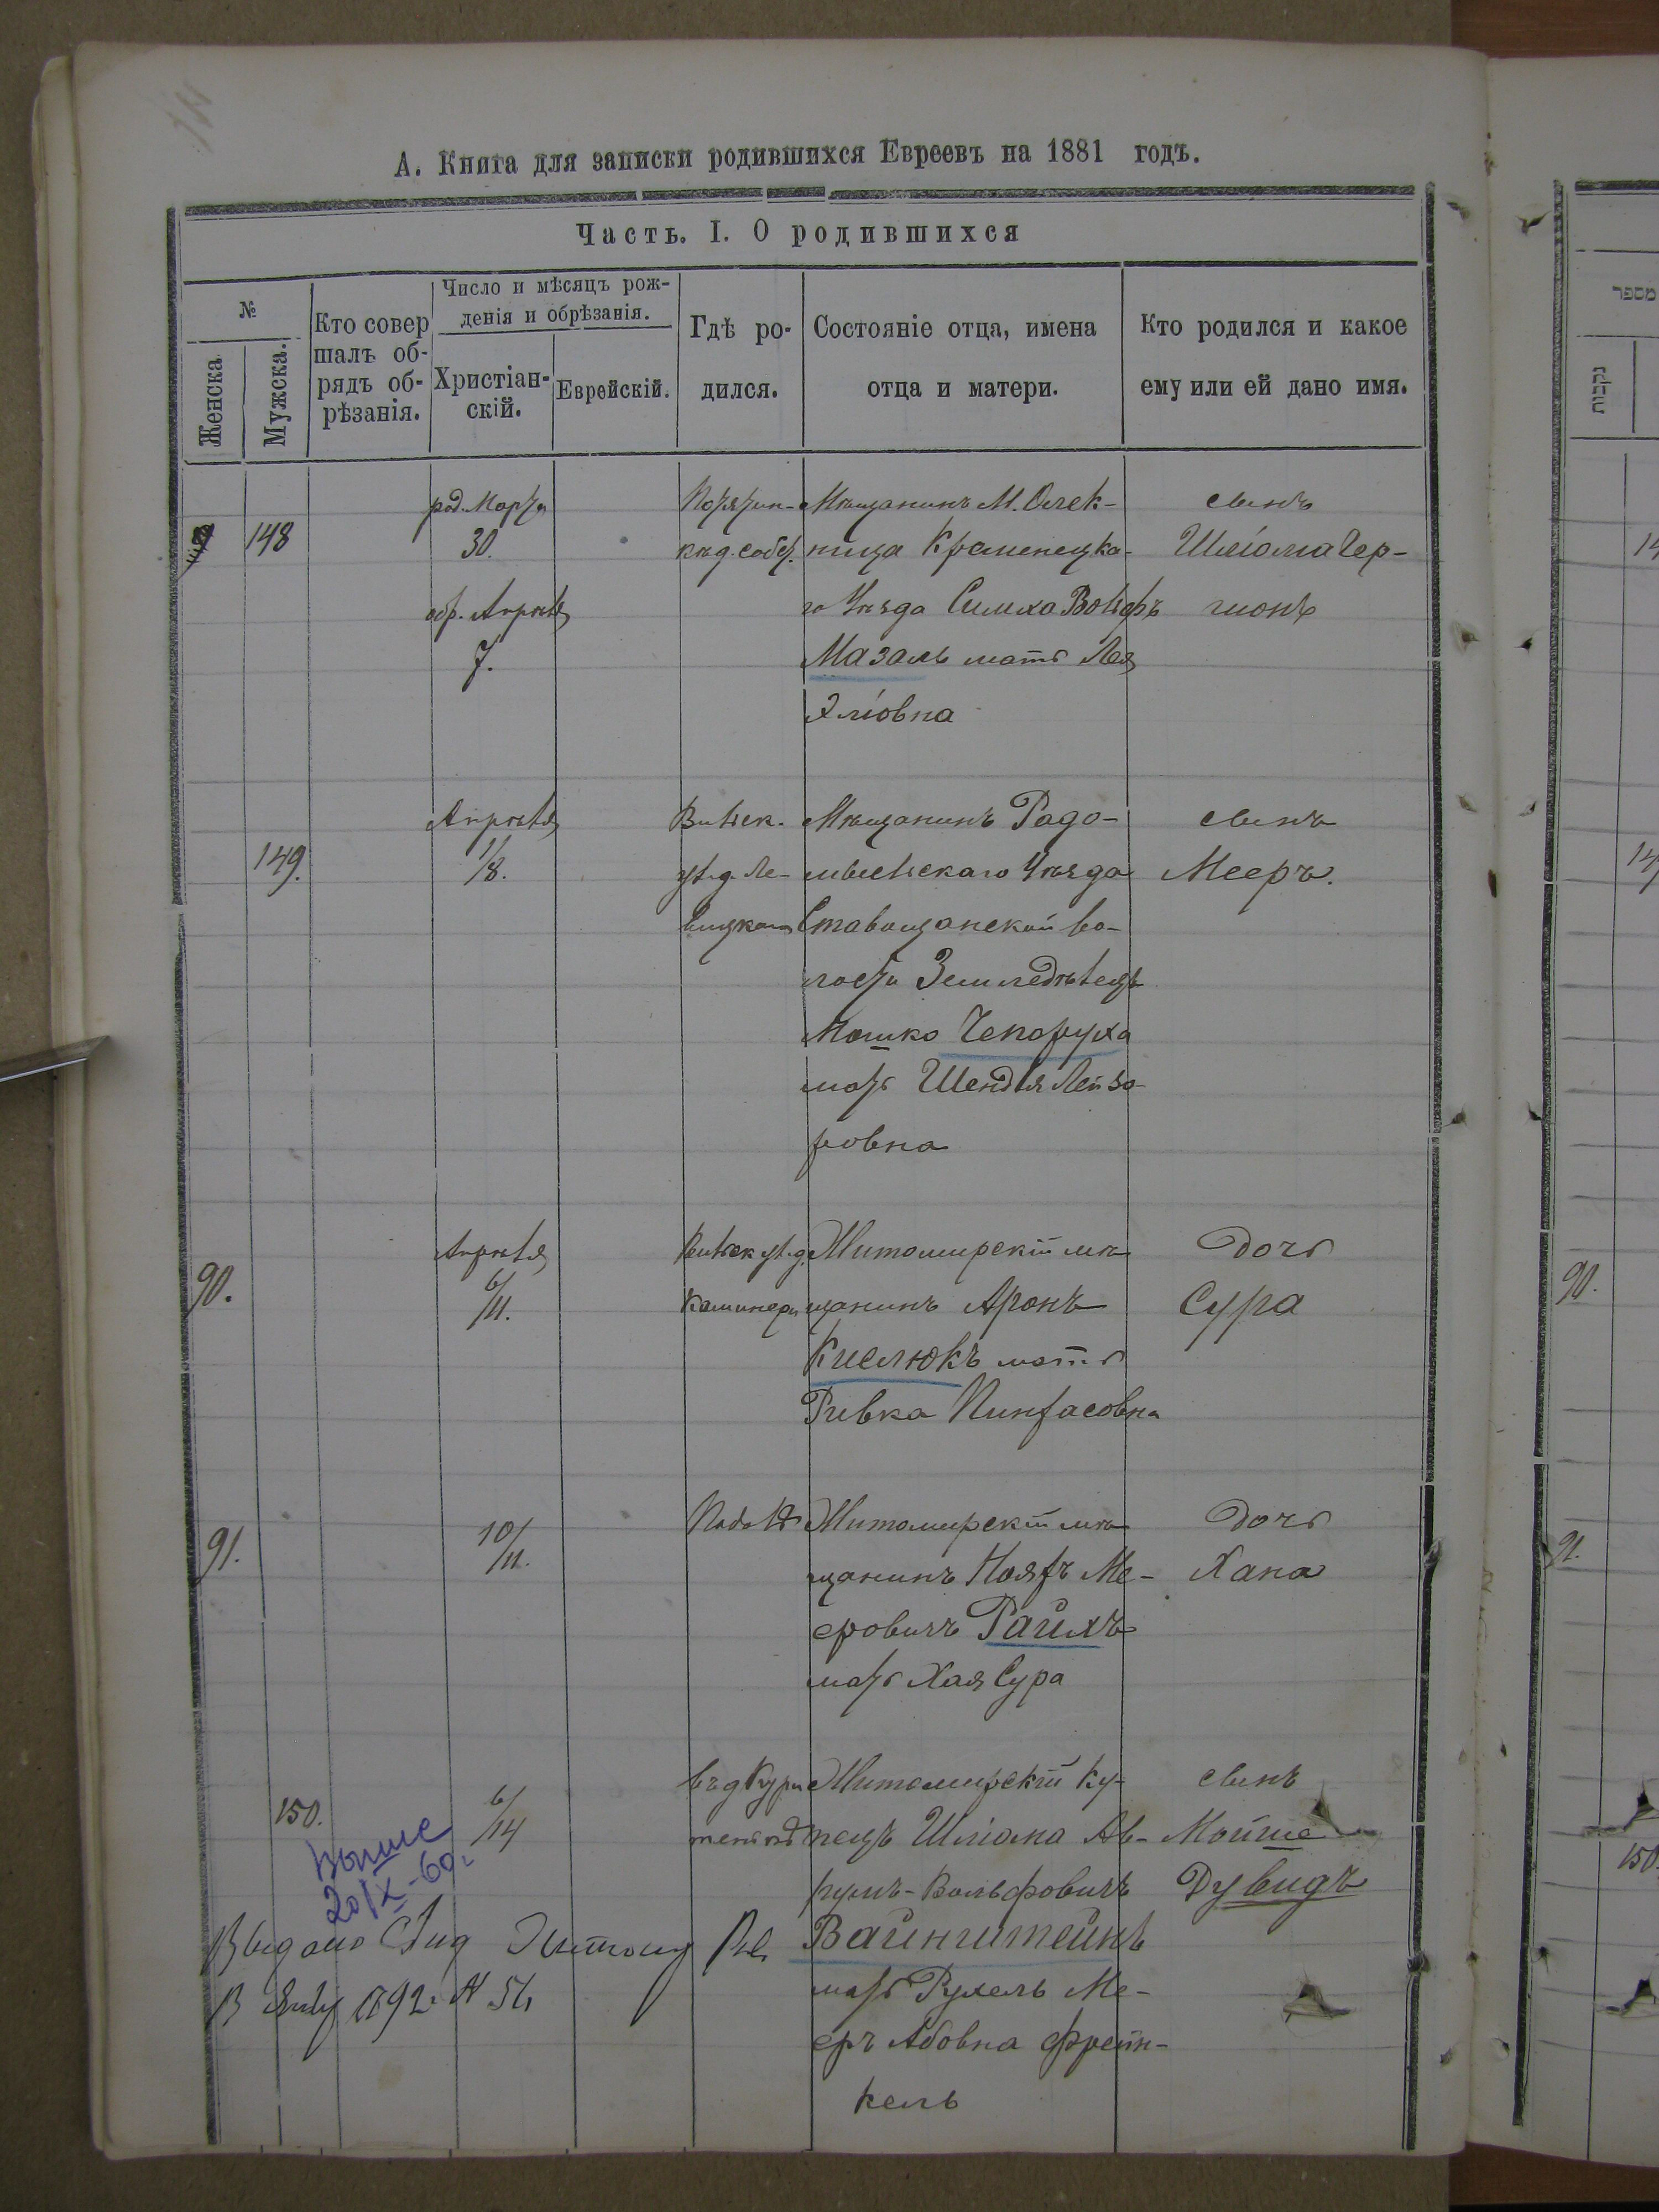 А. Книга для записки родившихся Евреевъ на 1881 годъ.
Часть. I. О родившихся
№
Женска
Мужска.
Кто совер
шалъ об-
рядъ об-
рѣзанія.
Число и мѣсяцъ рож-
денія и обрѣзанія.
Христіан-
скій.
Еврейскій.
Гдѣ ро-
дился.
Состояніе отца, имена
отца и матери.
Кто родился и какое
ему или ей дано имя.
148
род. Марта
30.
обр. Апрѣля
7.
д. соб.
Мѣщанинъ М. Олек-
ница Кременецка-
го Уѣзда Симха Вольфъ
Мазаль мать Лея
Эліовна
сынъ
Шліома Гер-
шонъ
149.
Апрѣля
1/8.
Вильск.
ул. д. Ле-
вицкаго
Мѣщанинъ Радо-
мысльскаго Уѣзда
Ставищанской во-
лости Земледѣлецъ
Мошко Чепоруха
мать Шендля Лейзо-
ровна
сынъ
Мееръ.
90.
Апрѣля
6/11.
Вильск ул. д.
Мѣ
Житомирскій мѣ
щанинъ Аронъ
Кислюкъ мать
Ривка Пинхасовна
дочь
Сура
91.
10/11.
Житомирскій мѣ
щанинъ Нояхъ Ме-
ровичъ Райхъ
мать Хая Сура
дочь
Хана
150.
6/14
въ д
Житомирскій ку-
пецъ Шліома Ав-
румъ-Вольфовичъ
Вайнштейнъ
мать Рухель Ме-
еръ Абовна Френ-
кель
сынъ
Мойше
Дувидъ
20/X-60г.
Выдано Свид
В 1892г № 56
מספר
נקבות
90.
91.
150.